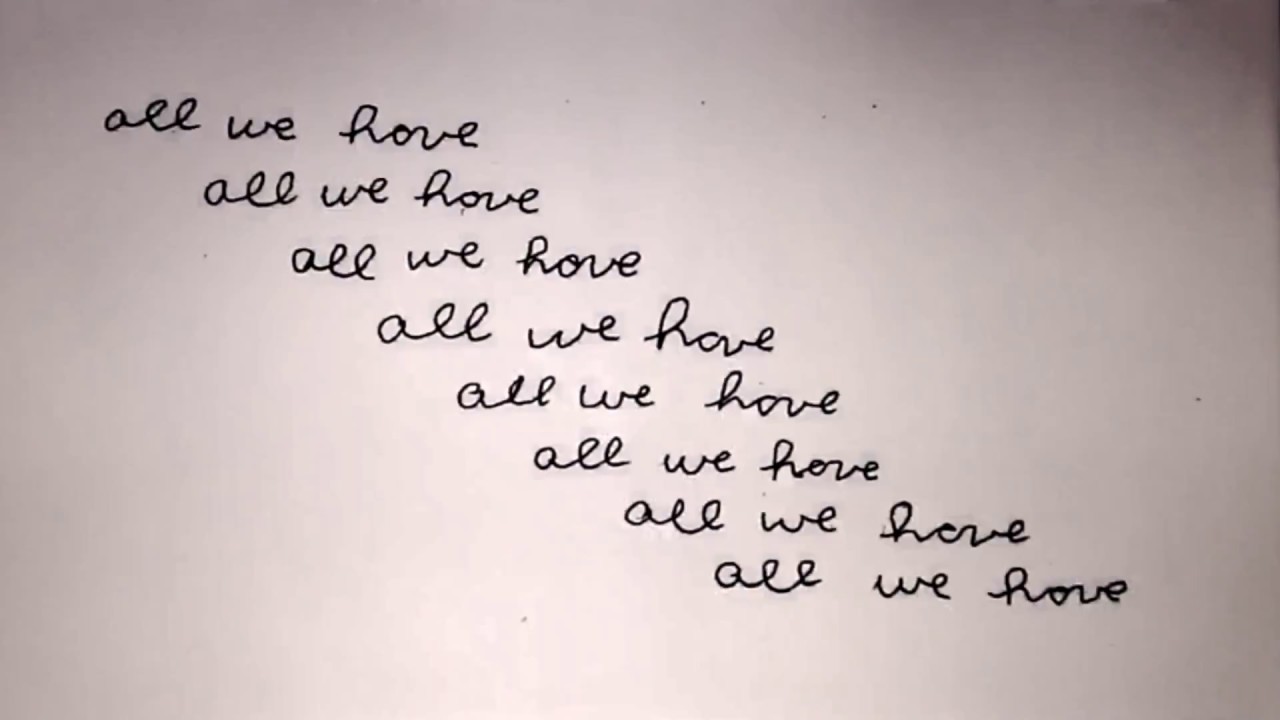 all we have
all we have
all we have
all we have
all we have
all we have
all we have
all we have